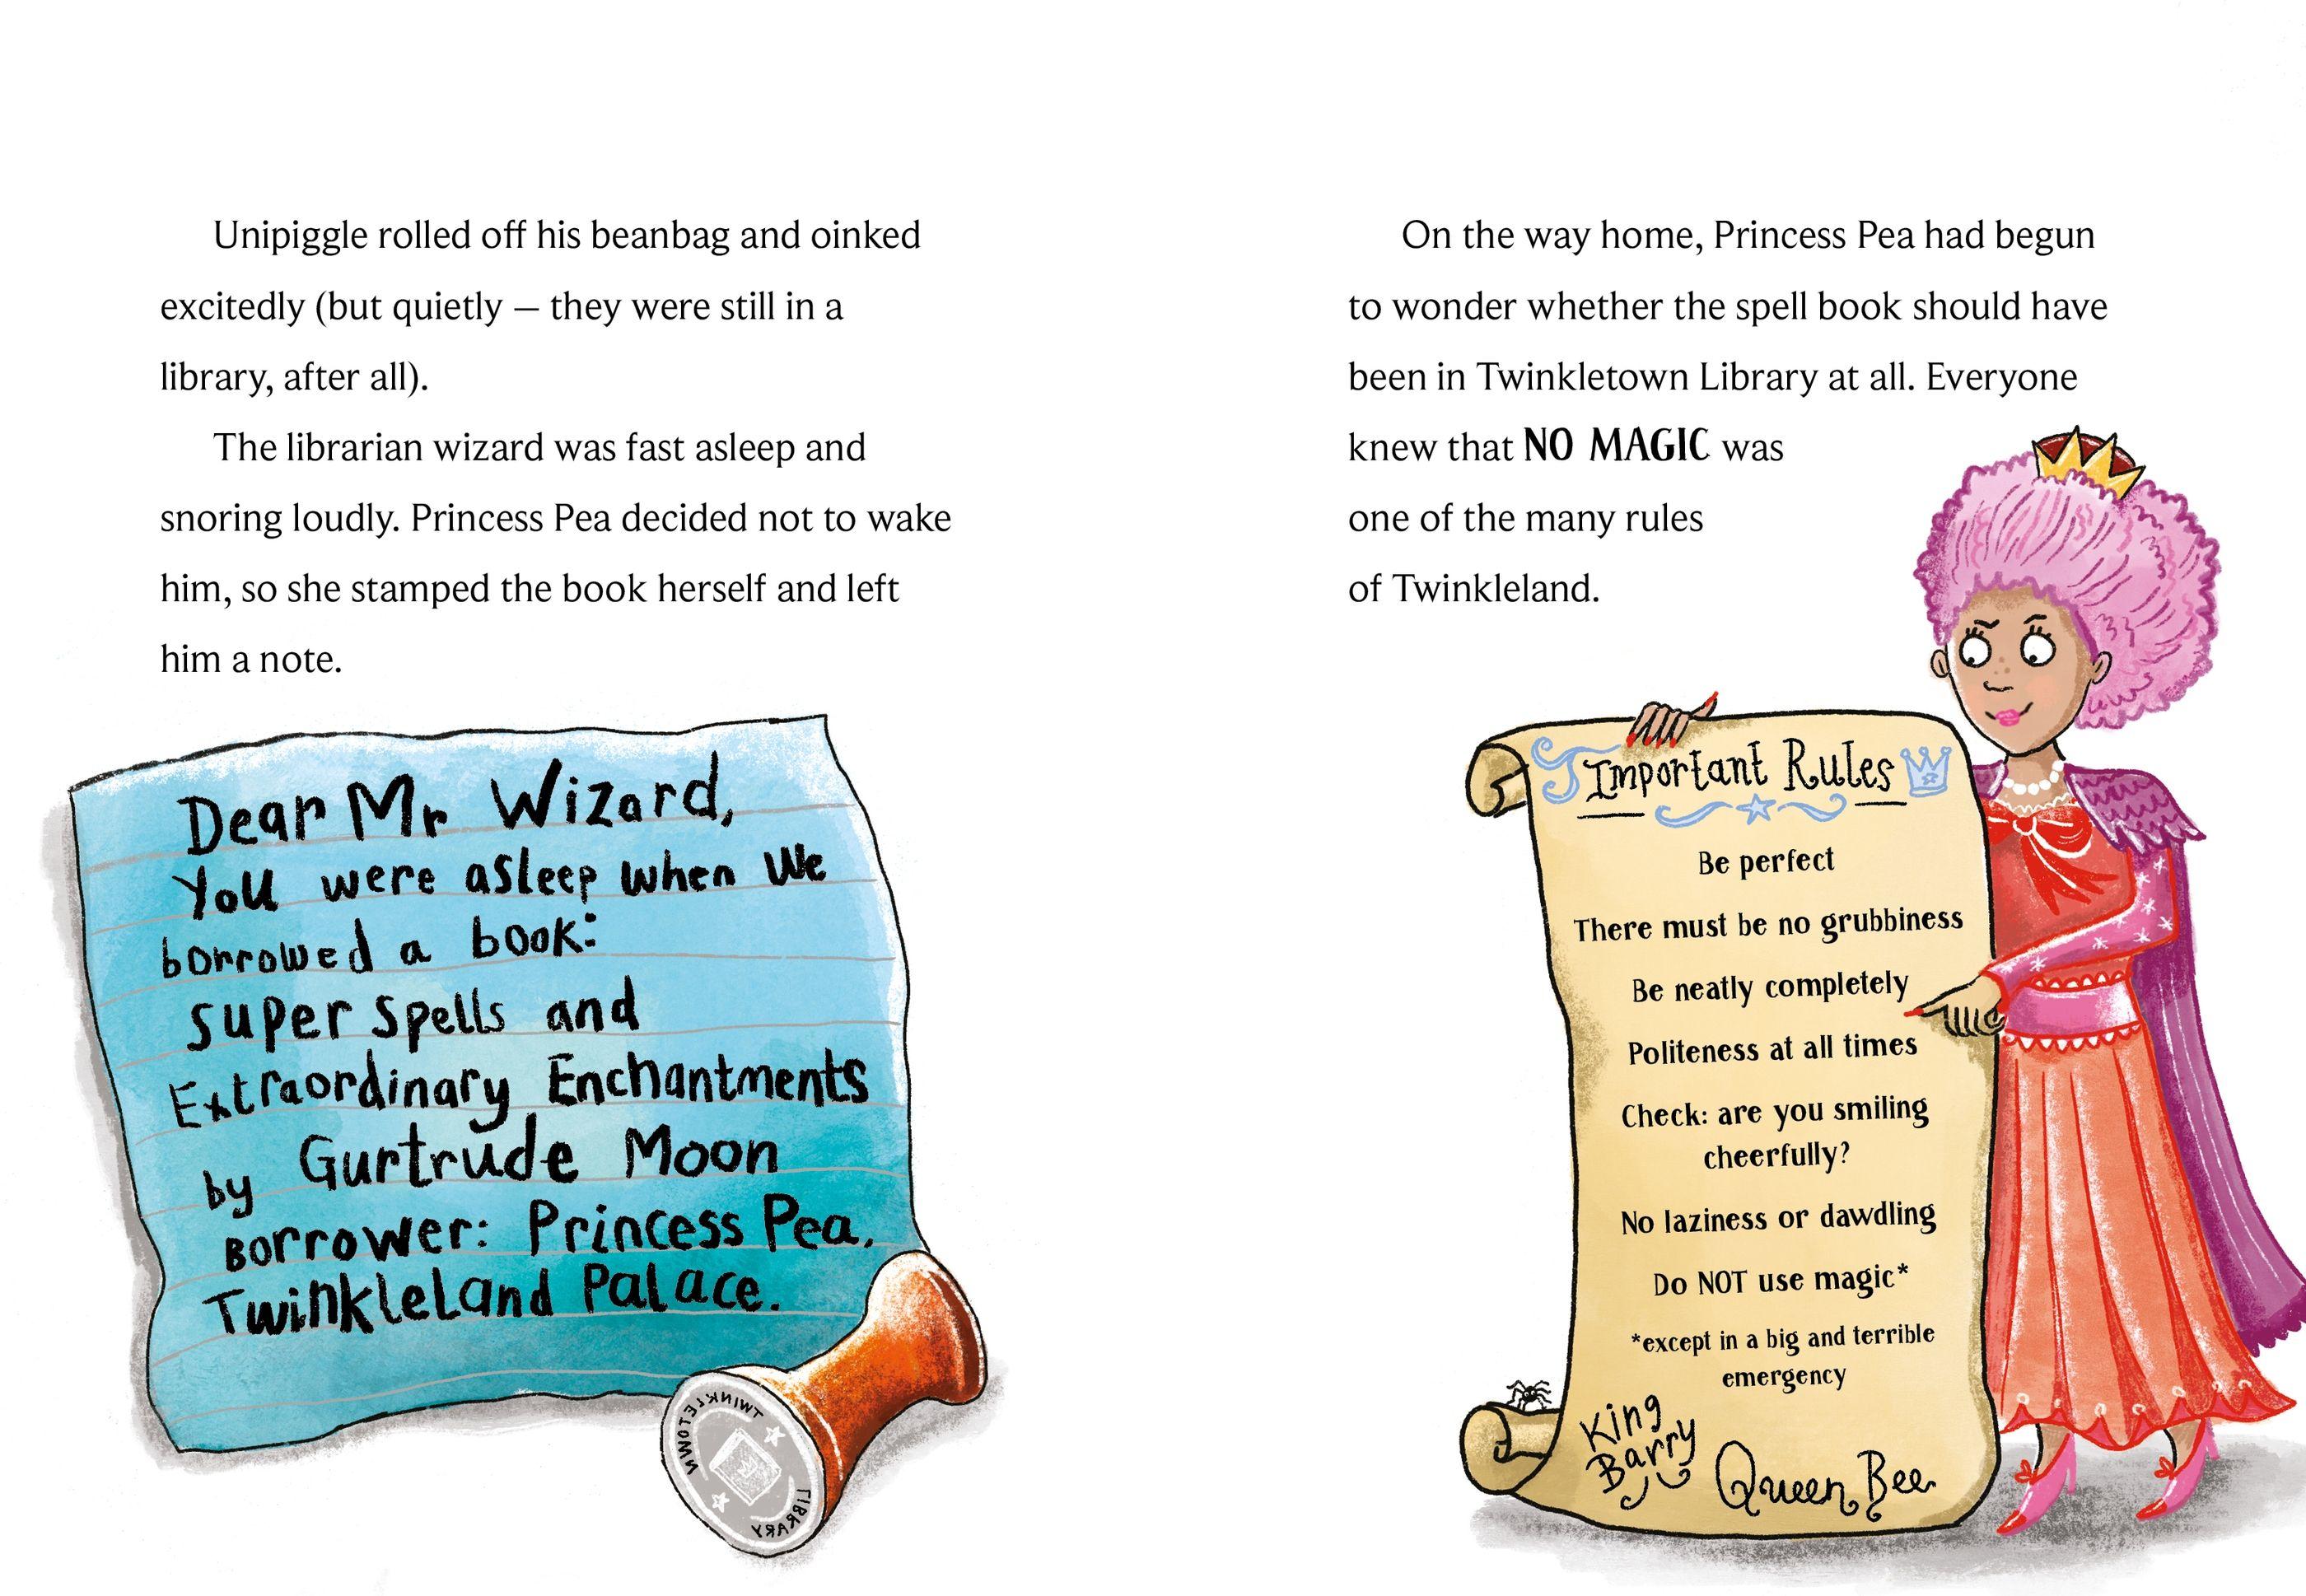 Unipiggle rolled off his beanbag and oinked
excitedly (but quietly – they were still in a
library, after all).
The librarian wizard was fast asleep and
snoring loudly. Princess Pea decided not to wake
him, so she stamped the book herself and left
him a note.
Dear Mr Wizard,
You were asleep when we
borrowed a book:
Super Spells and
Extraordinary Enchantments
by Gurtrude Moon
Borrower: Princess Pea,
TwinkleLand Palace.
TWINKLETOWN
LIBRARY
On the way home, Princess Pea had begun
to wonder whether the spell book should have
been in Twinkletown Library at all. Everyone
knew that NO MAGIC was
one of the many rules
of Twinkleland.
Important Rules
Be perfect
There must be no grubbiness
Be neatly completely
Politeness at all times
Check: are you smiling
cheerfully?
No laziness or dawdling
Do NOT use magic*
*except in a big and terrible
emergency
King
Barry
Queen Bee